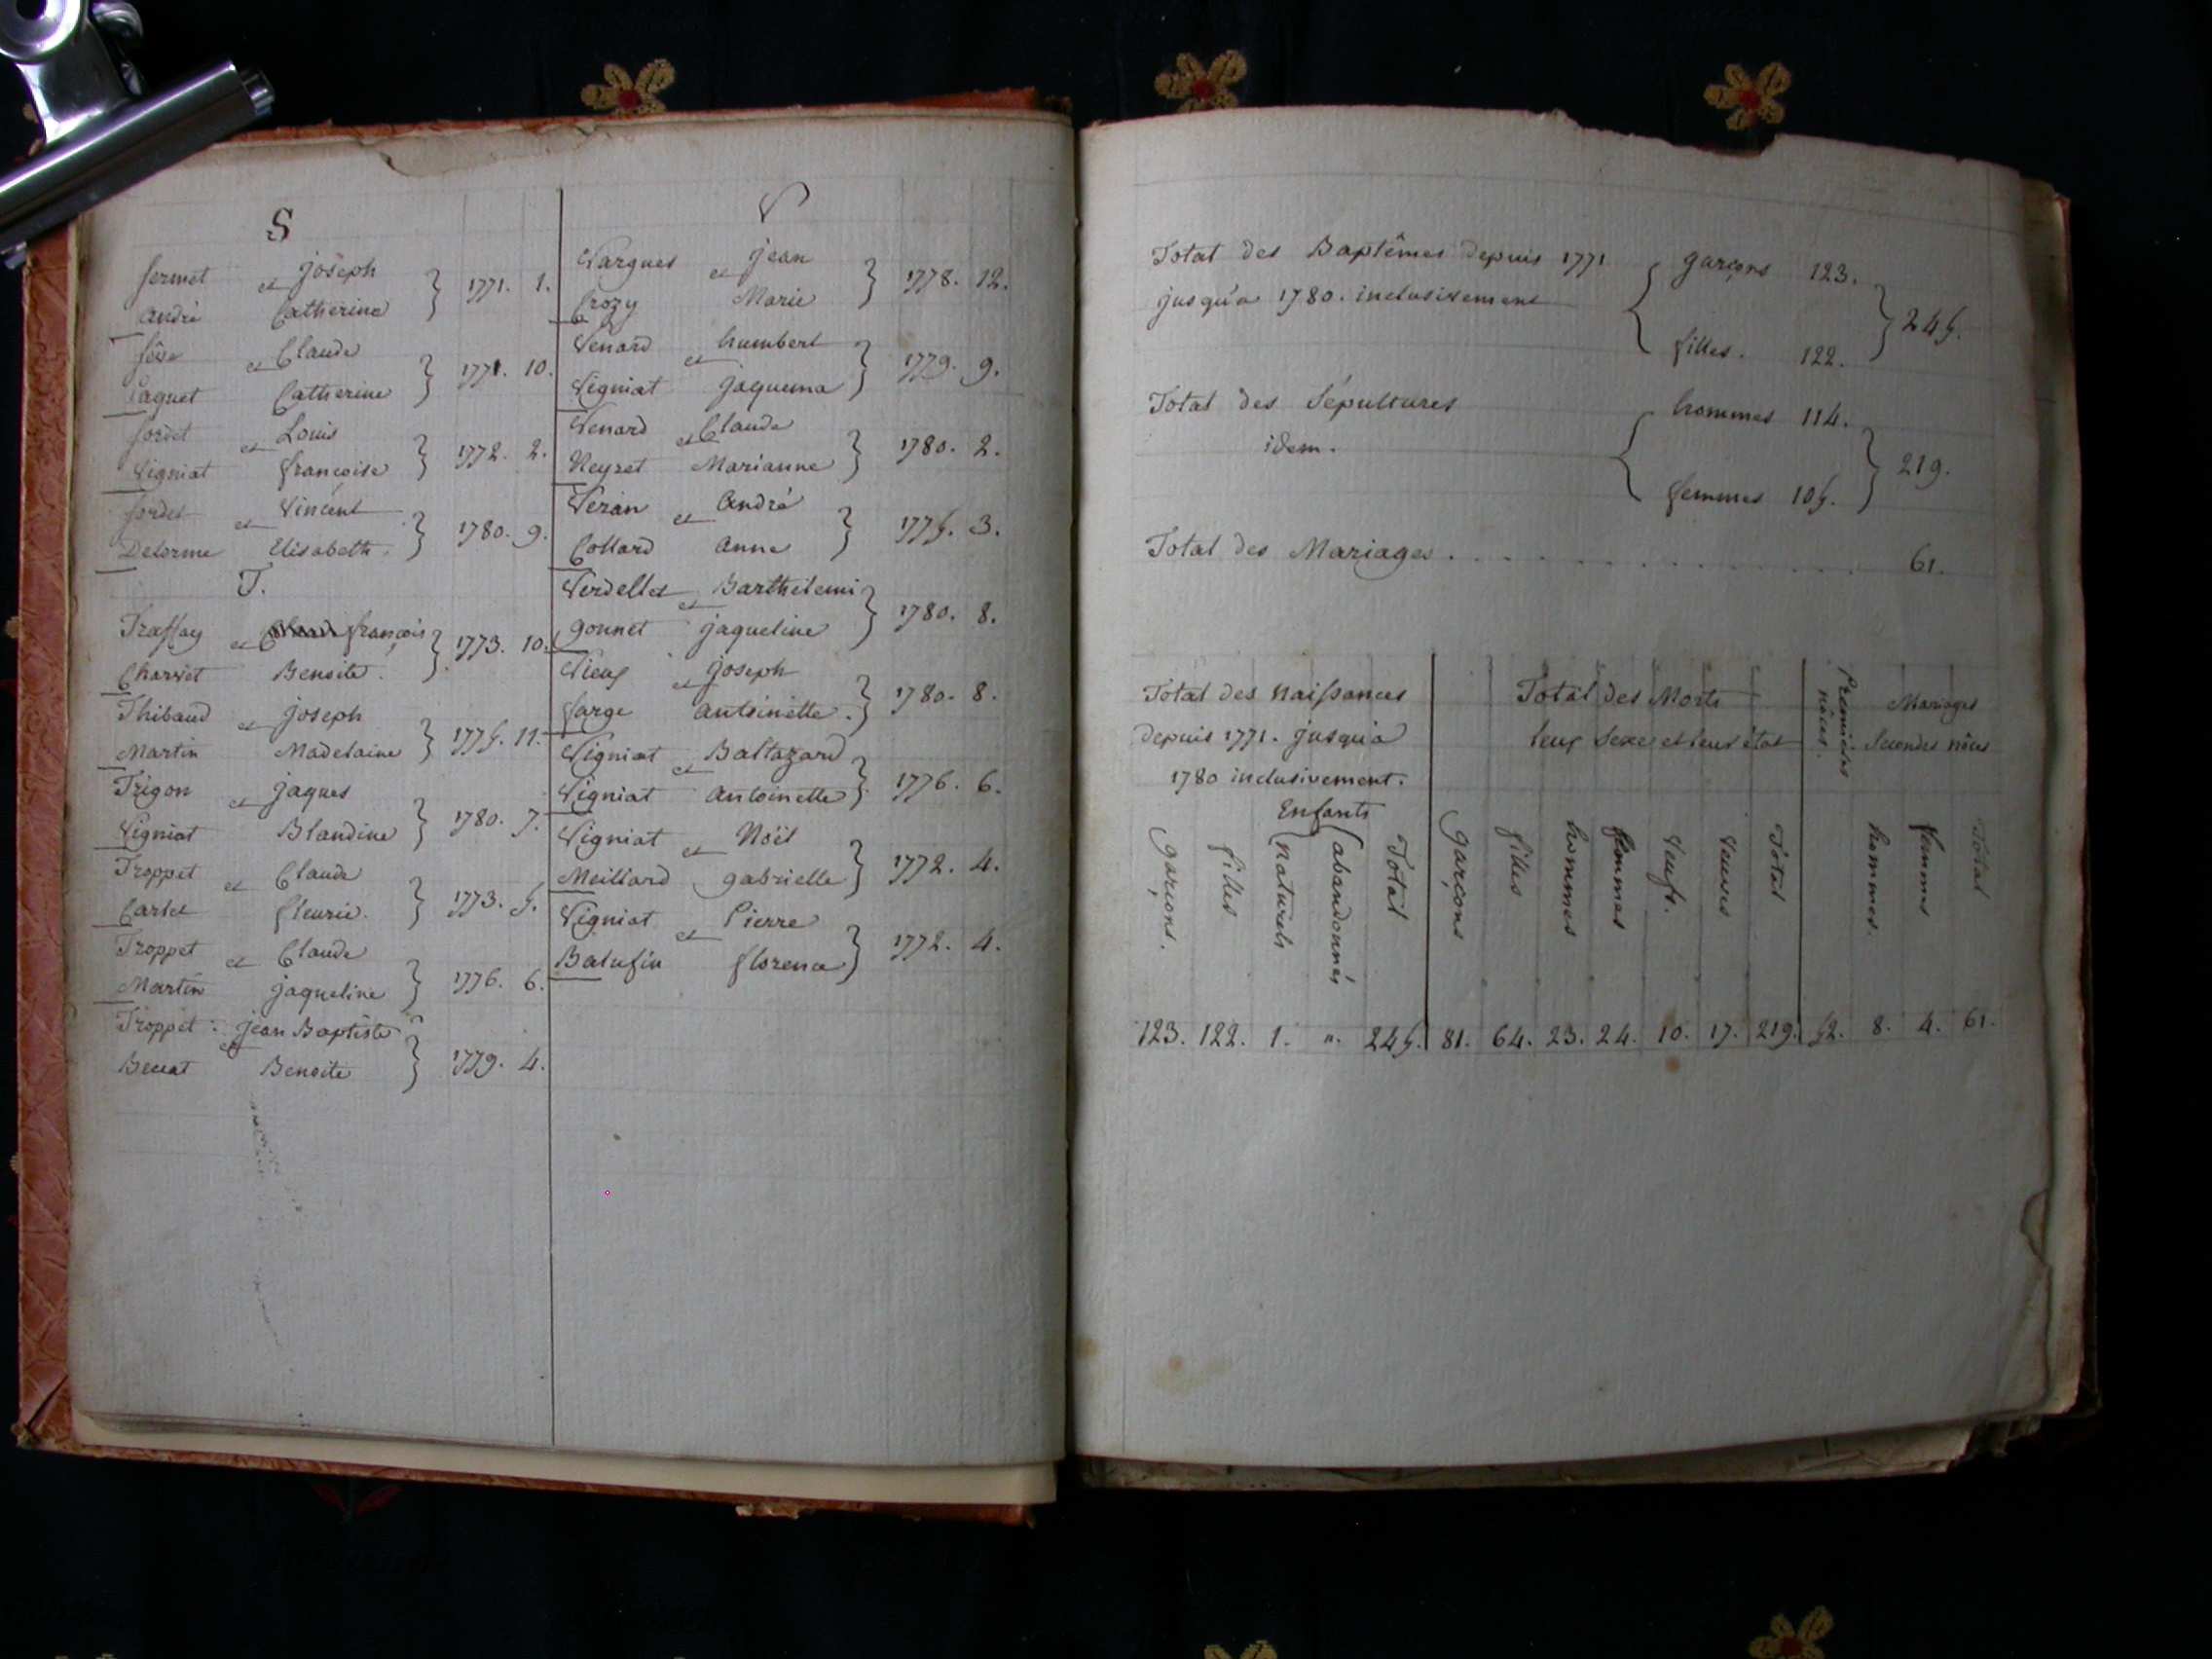 S
Sermet et Joseph } 1771. 1.
André Catherine
Sève et Claude } 1771. 10.
Paquet Catherine
Sordet et Louis } 1772. 2.
Vigniat françoise
Sordet et Vincent } 1780. 9.
Delorme Elisabeth.
T.
Traffay et françois } 1773. 10.
Charvet Benoite.
Thibaud et joseph } 1775. 11.
Martin Madelaine
Trigon et jaques } 1780. 7.
Vigniat Blandine
Troppet et Claude } 1773. 5.
Carlet fleurie.
Troppet et Claude } 1776. 6.
Martin jaqueline
Troppet et jean Baptiste } 1779. 4.
Benoite
V
Vargues et jean } 1778. 12.
Crozy Marie
Venard et humbert } 1779. 9.
Vigniat jaquema
Venard et Claude } 1780. 2.
Neyret Marianne
Veran et André } 1775. 3.
Collard anne
Verdellet et Barthelemi } 1780. 8.
gonnet jaqueline
Vieux et joseph } 1780. 8.
farge antoinette.
Vigniat et Baltazard } 1776. 6.
Vigniat antoinette
Vigniat et Noël } 1772. 4.
Meillard gabrielle
Vigniat et Pierre } 1772. 4.
Balufin florence
Total des Baptêmes depuis 1771 { garçons 123. } 245.
jusqu'a 1780. inclusivement
filles. 122.
Total des Sépultures { hommes 114. } 219.
idem.
femmes 105.
Total des Mariages . . . . . . . . . . . 61.
Total des naissances
depuis 1771. jusqu'a
1780 inclusivement.
Enfants
garçons.
filles
naturels
abandonnés
Total
Total des Morts
leur Sexe et leur état
garçons
filles
hommes
femmes
Veufs.
Veuves
Total
Premières nôces.
Mariages
Secondes nôces
hommes.
femmes
Total
123. 122. 1. ". 245. 81. 64. 23. 24. 10. 17. 219. 52. 8. 4. 61.